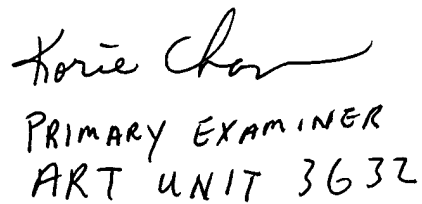 Korie Chan
PRIMARY EXAMINER
ART UNIT 3632